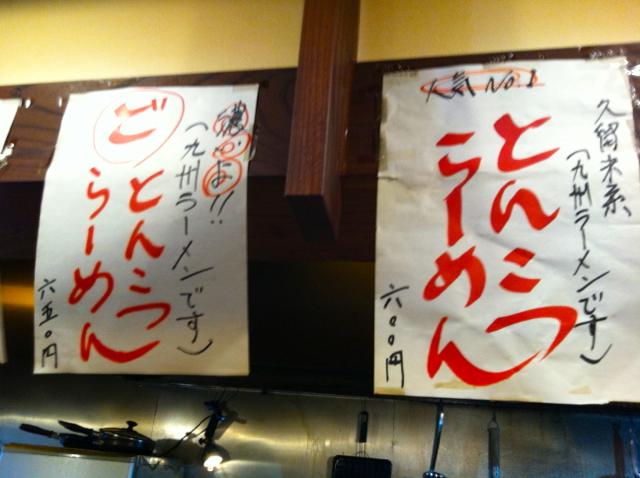 久留米系、
(九州ラーメンです)
人気No.1
とんこつ
らーめん
六〇〇円
濃いよ!!
(九州ラーメンです)
ど
とんこつ
らーめん
六五〇円